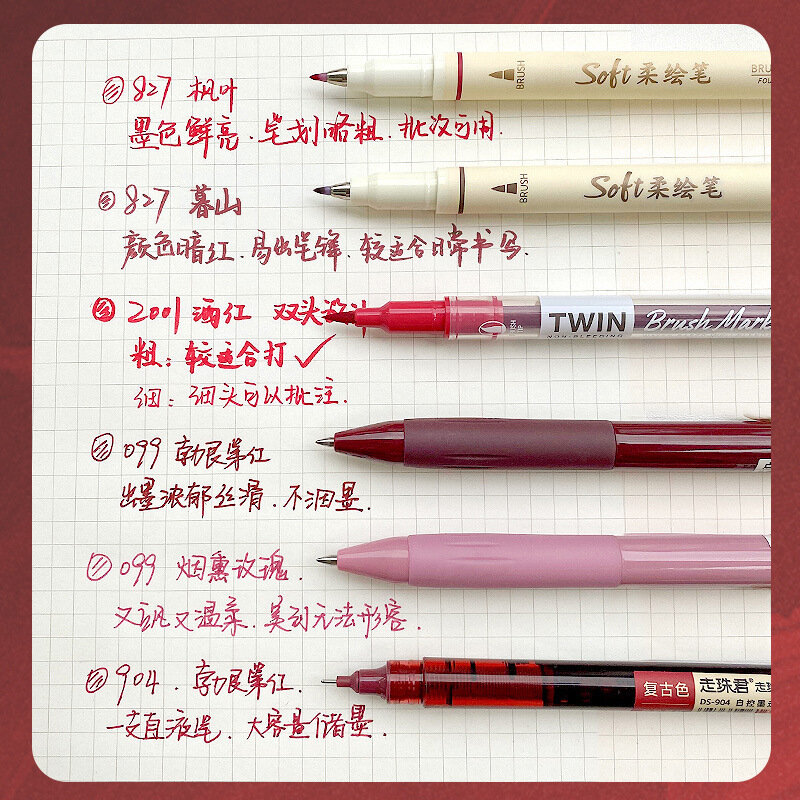 827 枫叶
墨色鲜亮.笔划略粗.批次可用.
BRUSH
Soft柔绘笔
827 暮山
颜色暗红.易出笔锋.较适合日常书写.
BRUSH
Soft柔绘笔
2001 酒红 双头设计
TWIN
NON-BLEEDING
Brush Mark
粗:较适合打✓
细:细头可以批注.
099 勃艮第红
出墨浓郁丝滑.不洇墨.
099 烟熏玫瑰.
又飒又温柔.美到无法形容.
904.勃艮第红.
一支直液笔.大容量储墨.
复古色
走珠君®
DS-904 自控墨